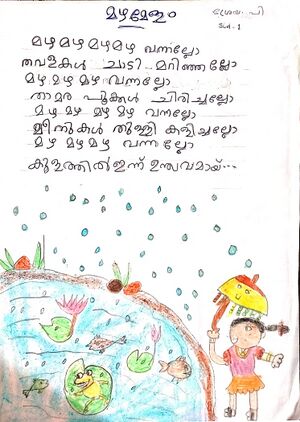 മഴമേളം
ശ്രേയ. പി
Std - 1
മഴ മഴ മഴ മഴ വന്നല്ലോ
തവളകൾ ചാടി മറിഞ്ഞല്ലോ
മഴ മഴ മഴ വന്നല്ലോ
താമര പൂക്കൾ ചിരിച്ചല്ലോ
മഴ മഴ മഴ വന്നല്ലോ
മീനുകൾ തുള്ളി കളിച്ചല്ലോ
മഴ മഴ മഴ വന്നല്ലോ
കുളത്തിൽ ഇന്ന് ഉത്സവമായ്...